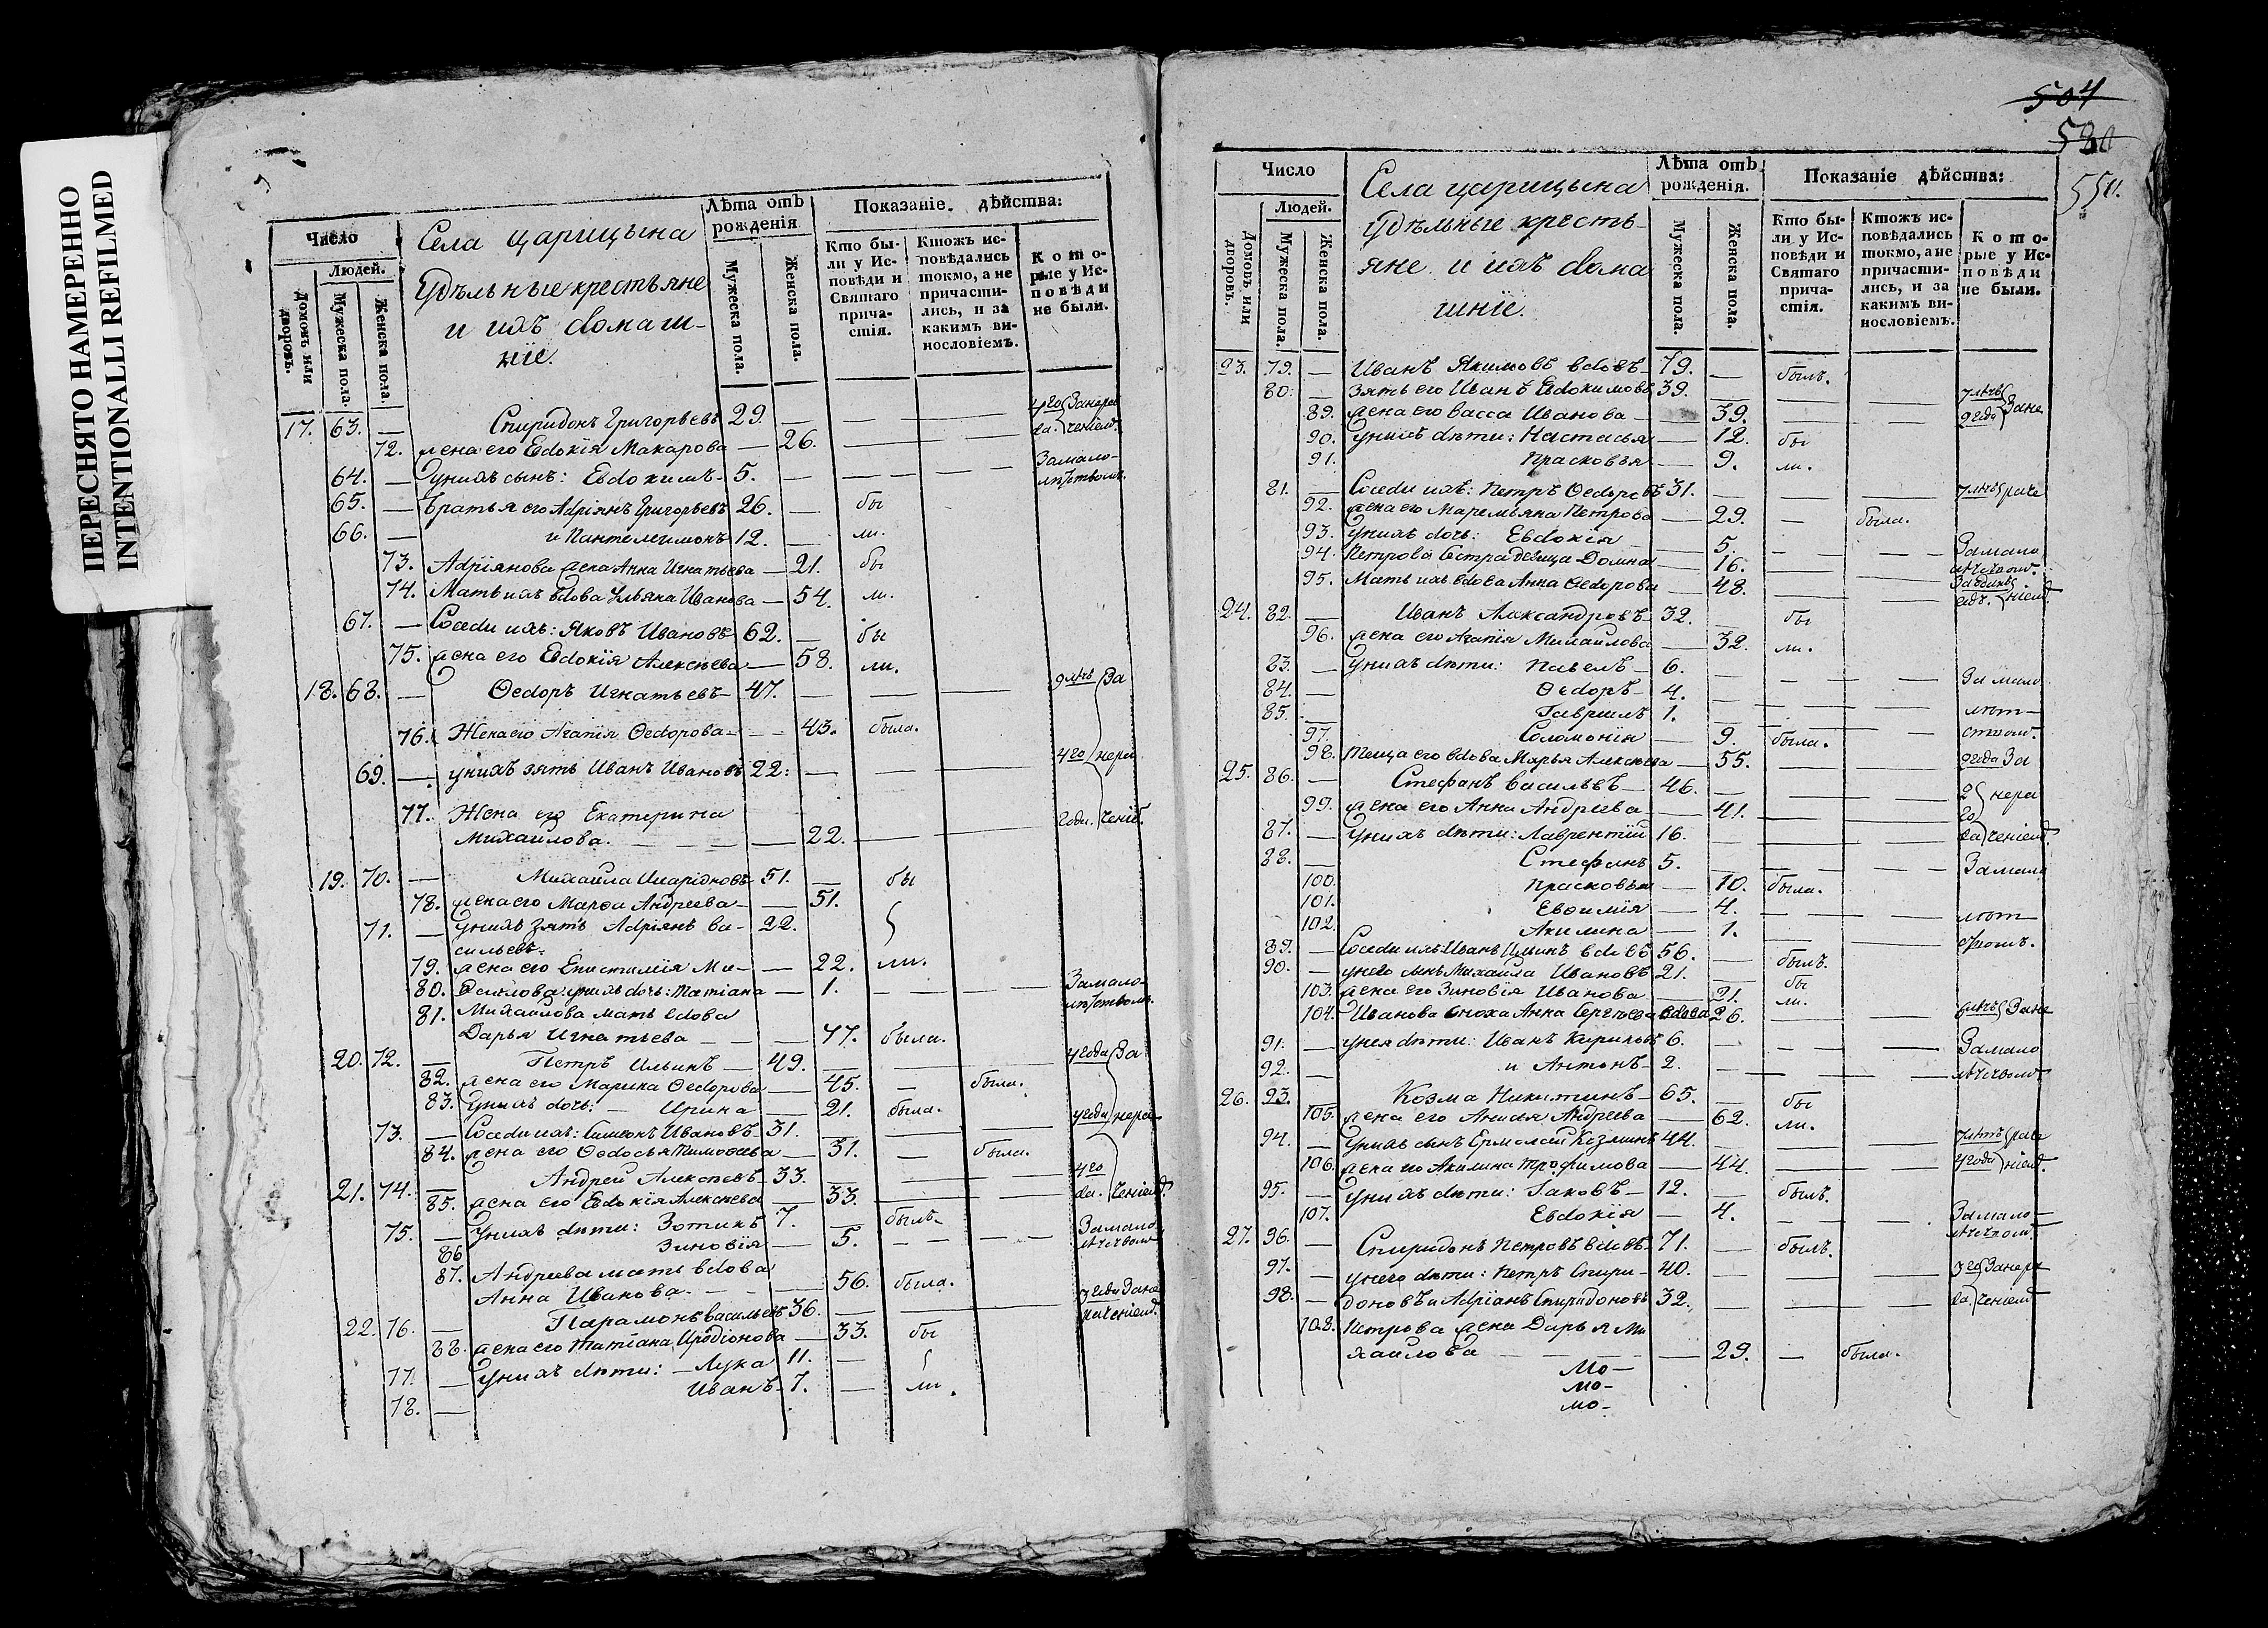 ПЕРЕСНЯТО НАМЕРЕННО
INTENTIONALLI REFILMED
Число
Людей.
Домовъ, или дворовъ.
Мужеска пола.
Женска пола.
Села царицына
Удѣльные крестьяне
и ихъ домаш-
ніе.
Лѣта отъ рожденія
Мужеска пола.
Женска пола.
Показаніе дѣйства:
Кто бы-ли у Ис-повѣди и Святаго прича-стія.
Ктожъ ис-повѣдались токмо, а не причасти-лись, и за какимъ ви-нословіемъ.
Кото-рые у Ис-повѣди не были.
17. 63. — Спиридонъ Григорьевъ 29. —
72. жена его Евдокія Макарова — 26.
64. — у нихъ сынъ: Евдокимъ 5. — Замало-
65. — Братья его Адріянъ Григорьевъ 26. — бы
66. — и Пантелеимонъ 12. — ли.
73. Адріянова жена Анна Игнатьева — 21. бы
74. Мать ихъ вдова Ульяна Иванова — 54. ли.
67. — Соседи ихъ: Яковъ Ивановъ 62. — бы
75. жена его Евдокія Алексѣева — 58. ли.
18. 68. — Ѳедоръ Игнатьевъ 47. — 9 лѣтъ За
76. Жена его Агапія Ѳедорова — 43. была.
69. — у нихъ зять Иванъ Ивановъ 22. — нера
77. Жена его Екатерина
Михайлова. — 22. — года. ченіе.
19. 70. — Михайла 51. — бы
78. жена его Марѳа Андреева — 51.
71. — У нихъ зять Адріянъ Ва- 22.
сильевъ.
79. жена его Епистимія Ми- — 22. ли.
80. у нихъ дочь: Татіана — 1. — Замало-
81. Михайлова мать вдова
Дарья Игнатьева — 77. была.
20. 72. — Петръ Ильинъ 49. — 4 года За
82. жена его Марина Ѳедорова — 45. — была.
83. У нихъ дочь: Ирина — 21. была.
73. — Соседи ихъ: Симеонъ Ивановъ 31. — 4 года нера
84. жена его Ѳедосья Тимоѳеева — 31. — была.
21. 74. — Андрей Алексѣевъ 33. —
85. жена его Евдокія Алексѣева — 33. —
75. — У нихъ дѣти: Зотикъ 7. — былъ.
86 Зиновія — 5. — Замало
87. Андреева мать вдова
Анна Иванова. — 56. была.
22. 76. — Парамонъ Васильевъ 36. — 3 года Зане
88. жена его Татіана Иродіонова — 33. бы
77. — У нихъ дѣти: Лука 11. —
78. — Иванъ 7. — ли.
504
580
550.
Число
Людей.
Домовъ, или дворовъ.
Мужеска пола.
Женска пола.
Села царицына
Удѣльные кресть-
яне и ихъ дома
шніе.
Лѣта отъ рожденія.
Мужеска пола.
Женска пола.
Показаніе дѣйства:
Кто бы-ли у Ис-повѣди и Святаго прича-стія.
Ктожъ ис-повѣдались токмо, а не причасти-лись, и за какимъ ви-нословіемъ.
Кото-рые у Ис-повѣди не были.
23. 79. — Иванъ Якимовъ вдовъ 79. — былъ.
80. — Зять его Иванъ Евдокимовъ 39. — 7 лѣтъ
89. жена его Васса Иванова — 39. — 9 года Зане
90. У нихъ дѣти: Настасья — 12. бы
91. Прасковья — 9. ли.
81. — Соседи ихъ: Петръ Ѳедоровъ 31. — 7 лѣтъ раче
92. жена его Маремьяна Петрова — 29. — была.
93. У нихъ дочь: Евдокія — 5. — Замало
94. Петрова сестра девица Домна — 16. —
95. Мать ихъ вдова Анна Ѳедорова — 48. —
24. 82. — Иванъ Александровъ 32. — бы
96. жена его Агапія Михайлова — 32. ли.
83. — У нихъ дѣти: Павелъ 6. — За мало
84. — Ѳедоръ 4. — лѣт-
85. — Гавриилъ 1. — ством.
97. Соломонія — 9. была.
98. Теща его вдова Марья Алексѣева — 55. — 9 года За
25. 86. — Стефанъ Васильевъ 46. — нера
99. жена его Анна Андреева — 41. —
87. — У нихъ дѣти: Лаврентій 16. —
88. — Стефанъ 5. — Замало
100. Прасковья — 10. была.
101. Евѳимія — 4. — лѣт-
102. Акилина — 1. —
89. — Соседи ихъ: Иванъ вдовъ 56. — былъ.
90. — У него сынъ Михайла Ивановъ 21. — бы
103. жена его Зиновія Иванова — 21. ли.
104. Иванова сноха Анна Сергѣева вдова 26. — 6 лѣтъ Зане
91. — У нея дѣти: Иванъ Кириловъ 6. — Замало
92. — и Антонъ 2. —
26. 93. — Козма Никитинъ 65. — бы
105. жена его Анисья Андреева — 62. ли.
94. — У нихъ сынъ Ермолай Козминъ 44. — 7 лѣтъ раче
106. жена его Акилина Трофимова — 44. — 4 года ніем.
95. — У нихъ дѣти: Іаковъ 12. — былъ.
107. Евдокія — 4. — Замало-
27. 96. — Спиридонъ Петровъ вдовъ 71. — былъ.
97. — У него дѣти: Петръ Спири- 40. —
98. — доновъ и Адріанъ Спиридоновъ 32. —
108. Петрова жена Дарья Ми
хаилова — 29. — была.
Мо-
мо-
мо-